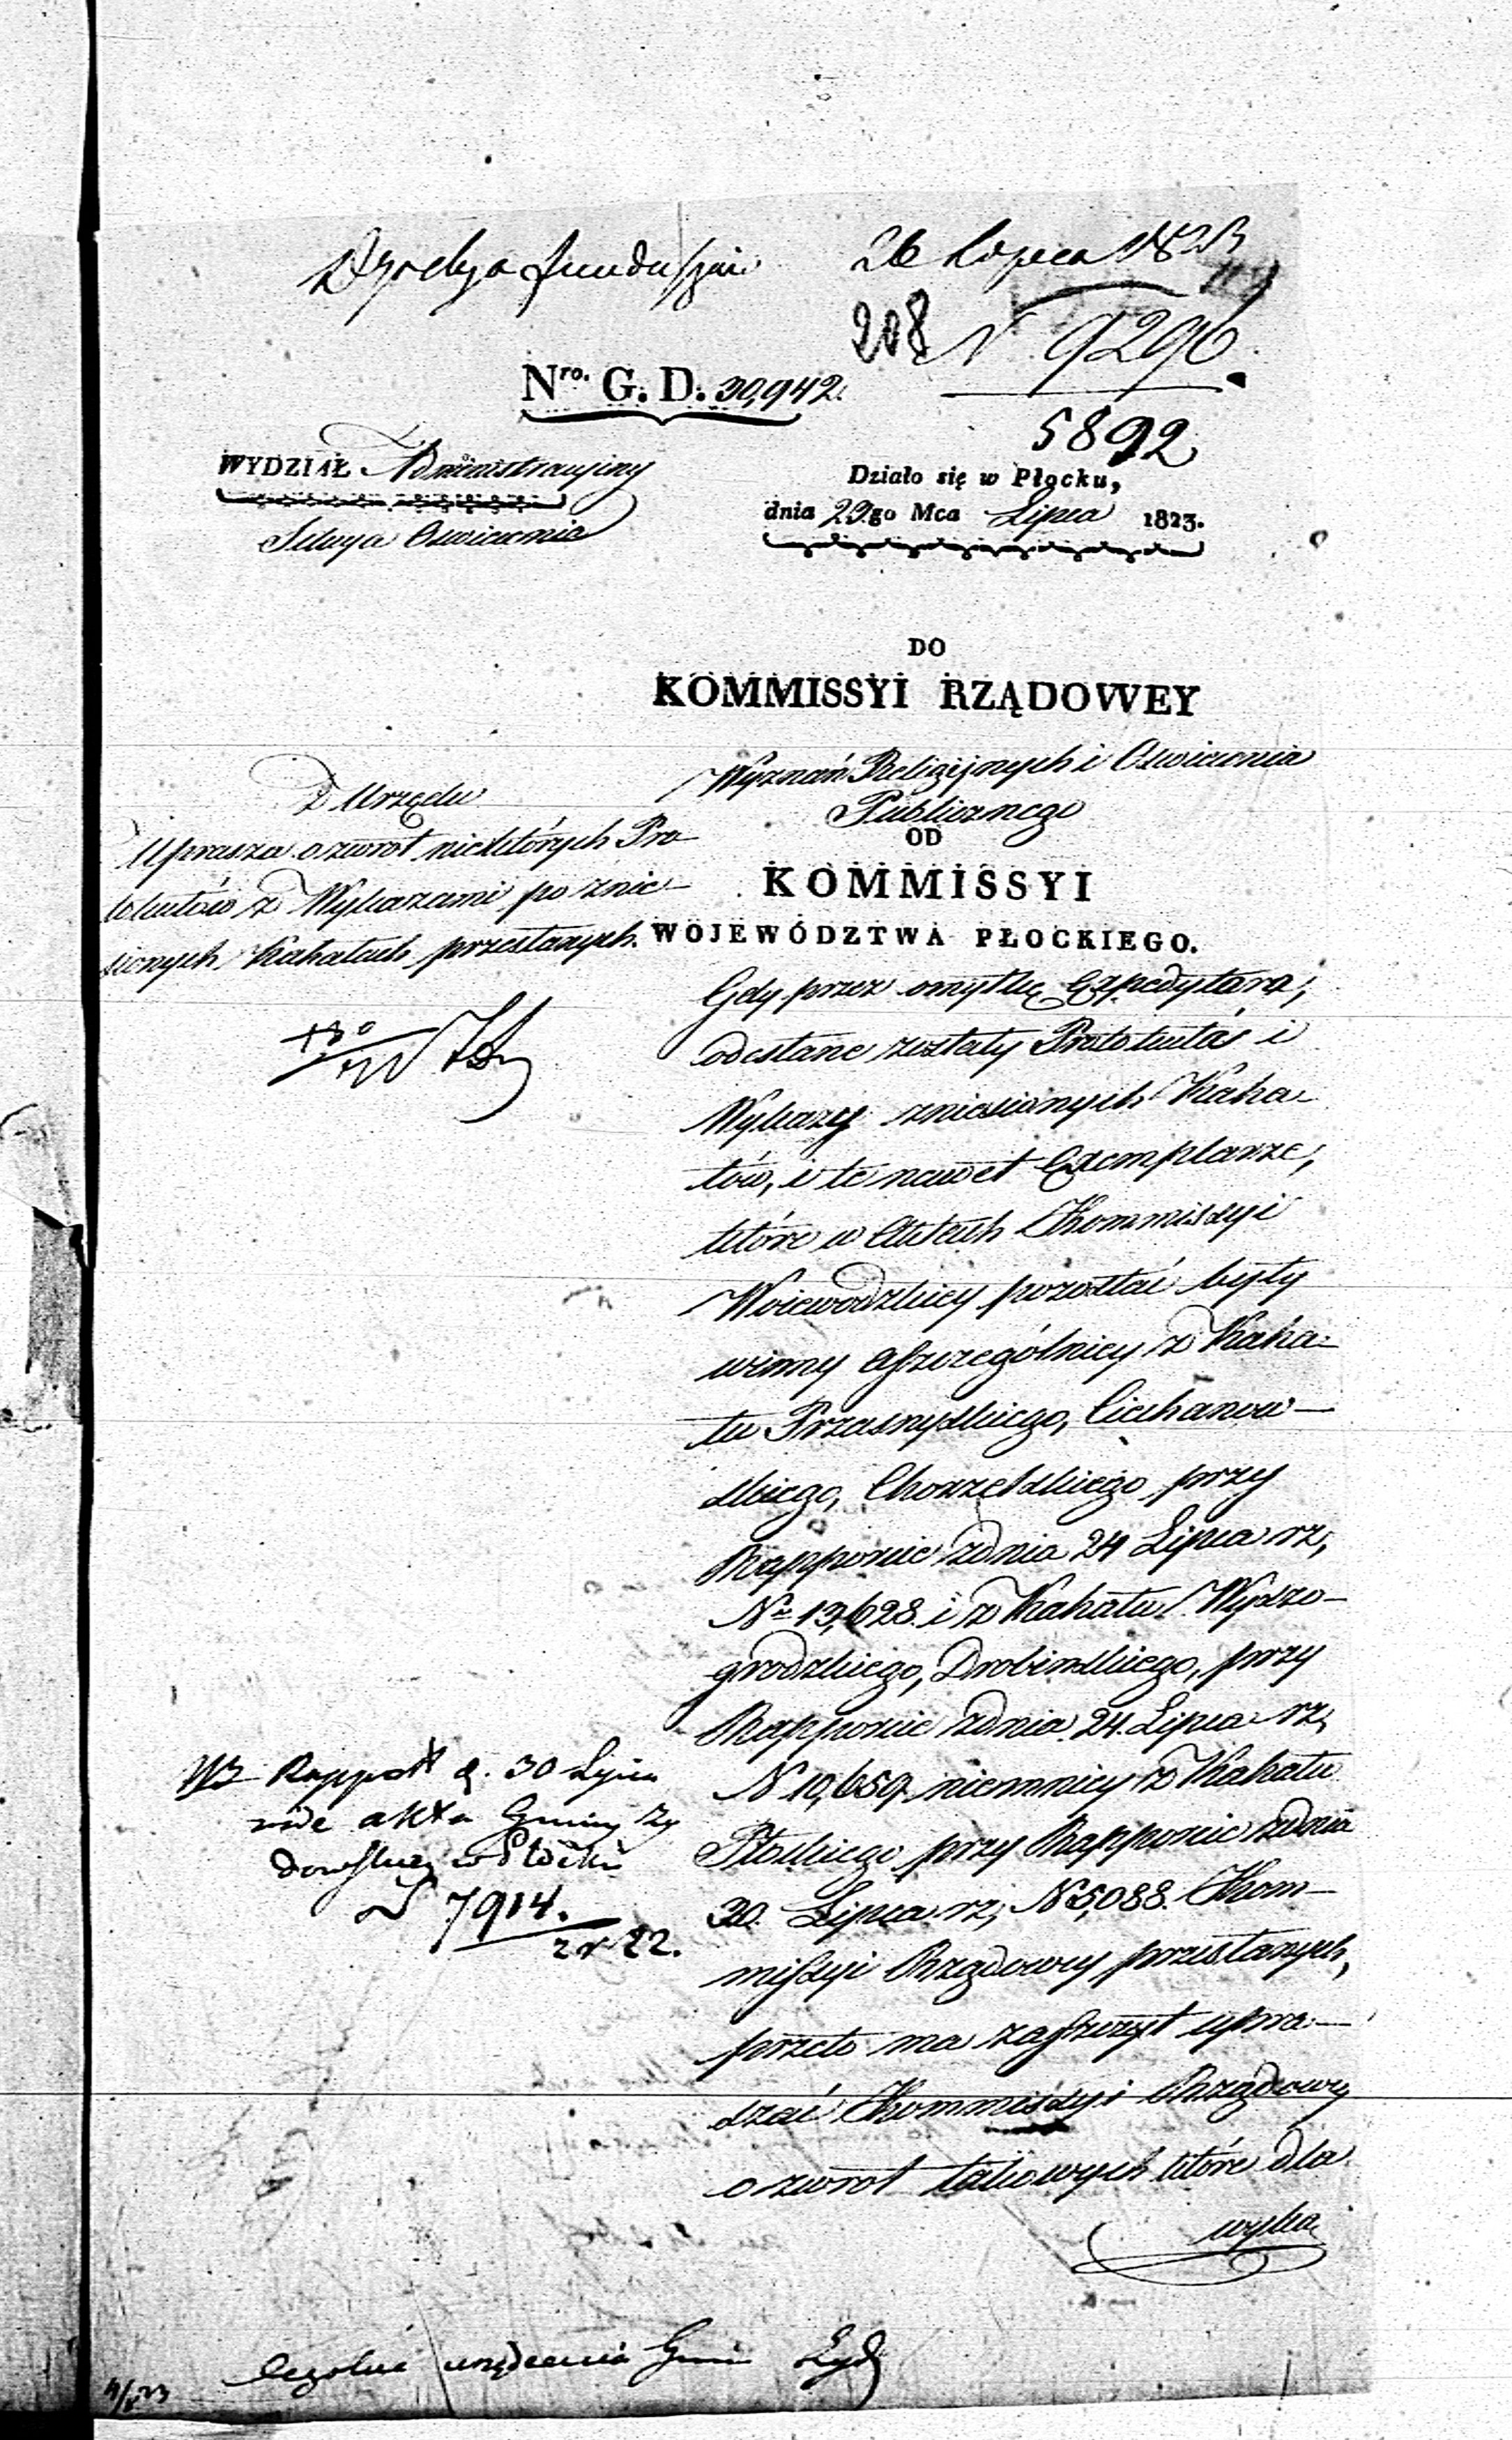 Dyrekcya funduszów
26 Lipca 1823
208 N. 9296.
5892
Nro. G. D. 30,942.
WYDZIAŁ Administracyiny
Sekcya Oswiecenia
Działo się w Płocku,
dnia 29.go Mca Lipca 1823.
DO
KOMMISSYI RZĄDOWEY
Wyznań Religijnych i Oswiecenia
Publicznego
OD
KOMMISSYI
WOJEWÓDZTWA PŁOCKIEGO.
Z Urzędu
Uprasza o zwrot niektórych Pro
tokułów z Wykazami po znie
sionych Kahałach przesłanych.
Gdy przez omyłkę Expedytora,
odesłane zostały Protokuła i
Wykazy zniesionych Kaha-
łów, i te nawet Exemplarze,
które w Aktach Kommissyi
Woiewodzkiey pozostać były
winny a szczególniey z Kaha-
łu Przasnyskiego, Ciechanow-
skiego, Chorzelskiego przy
Rapporcie zdnia 24 Lipca rz,
No 13,628. i z Kahału Wyszo-
grodzkiego, Drobinskiego, przy
Rapporcie zdnia 24. Lipca rz,
N 10,659. niemniey z Kahału
Płockiego przy Rapporcie zdnia
30. Lipca rz, N 5,088. Kom-
missyi Rządowey przesłanych,
przeto ma zaszczyt upra-
szać Kommissyi Rządowy
o zwrot takowych które dla
wyka
NB Rapport d. 30 Lipca
vide akta Gminy Ży
dowskiey w Płocku
N 7914.
z r 22.
Ogolne urządzenia Gmin Żyd